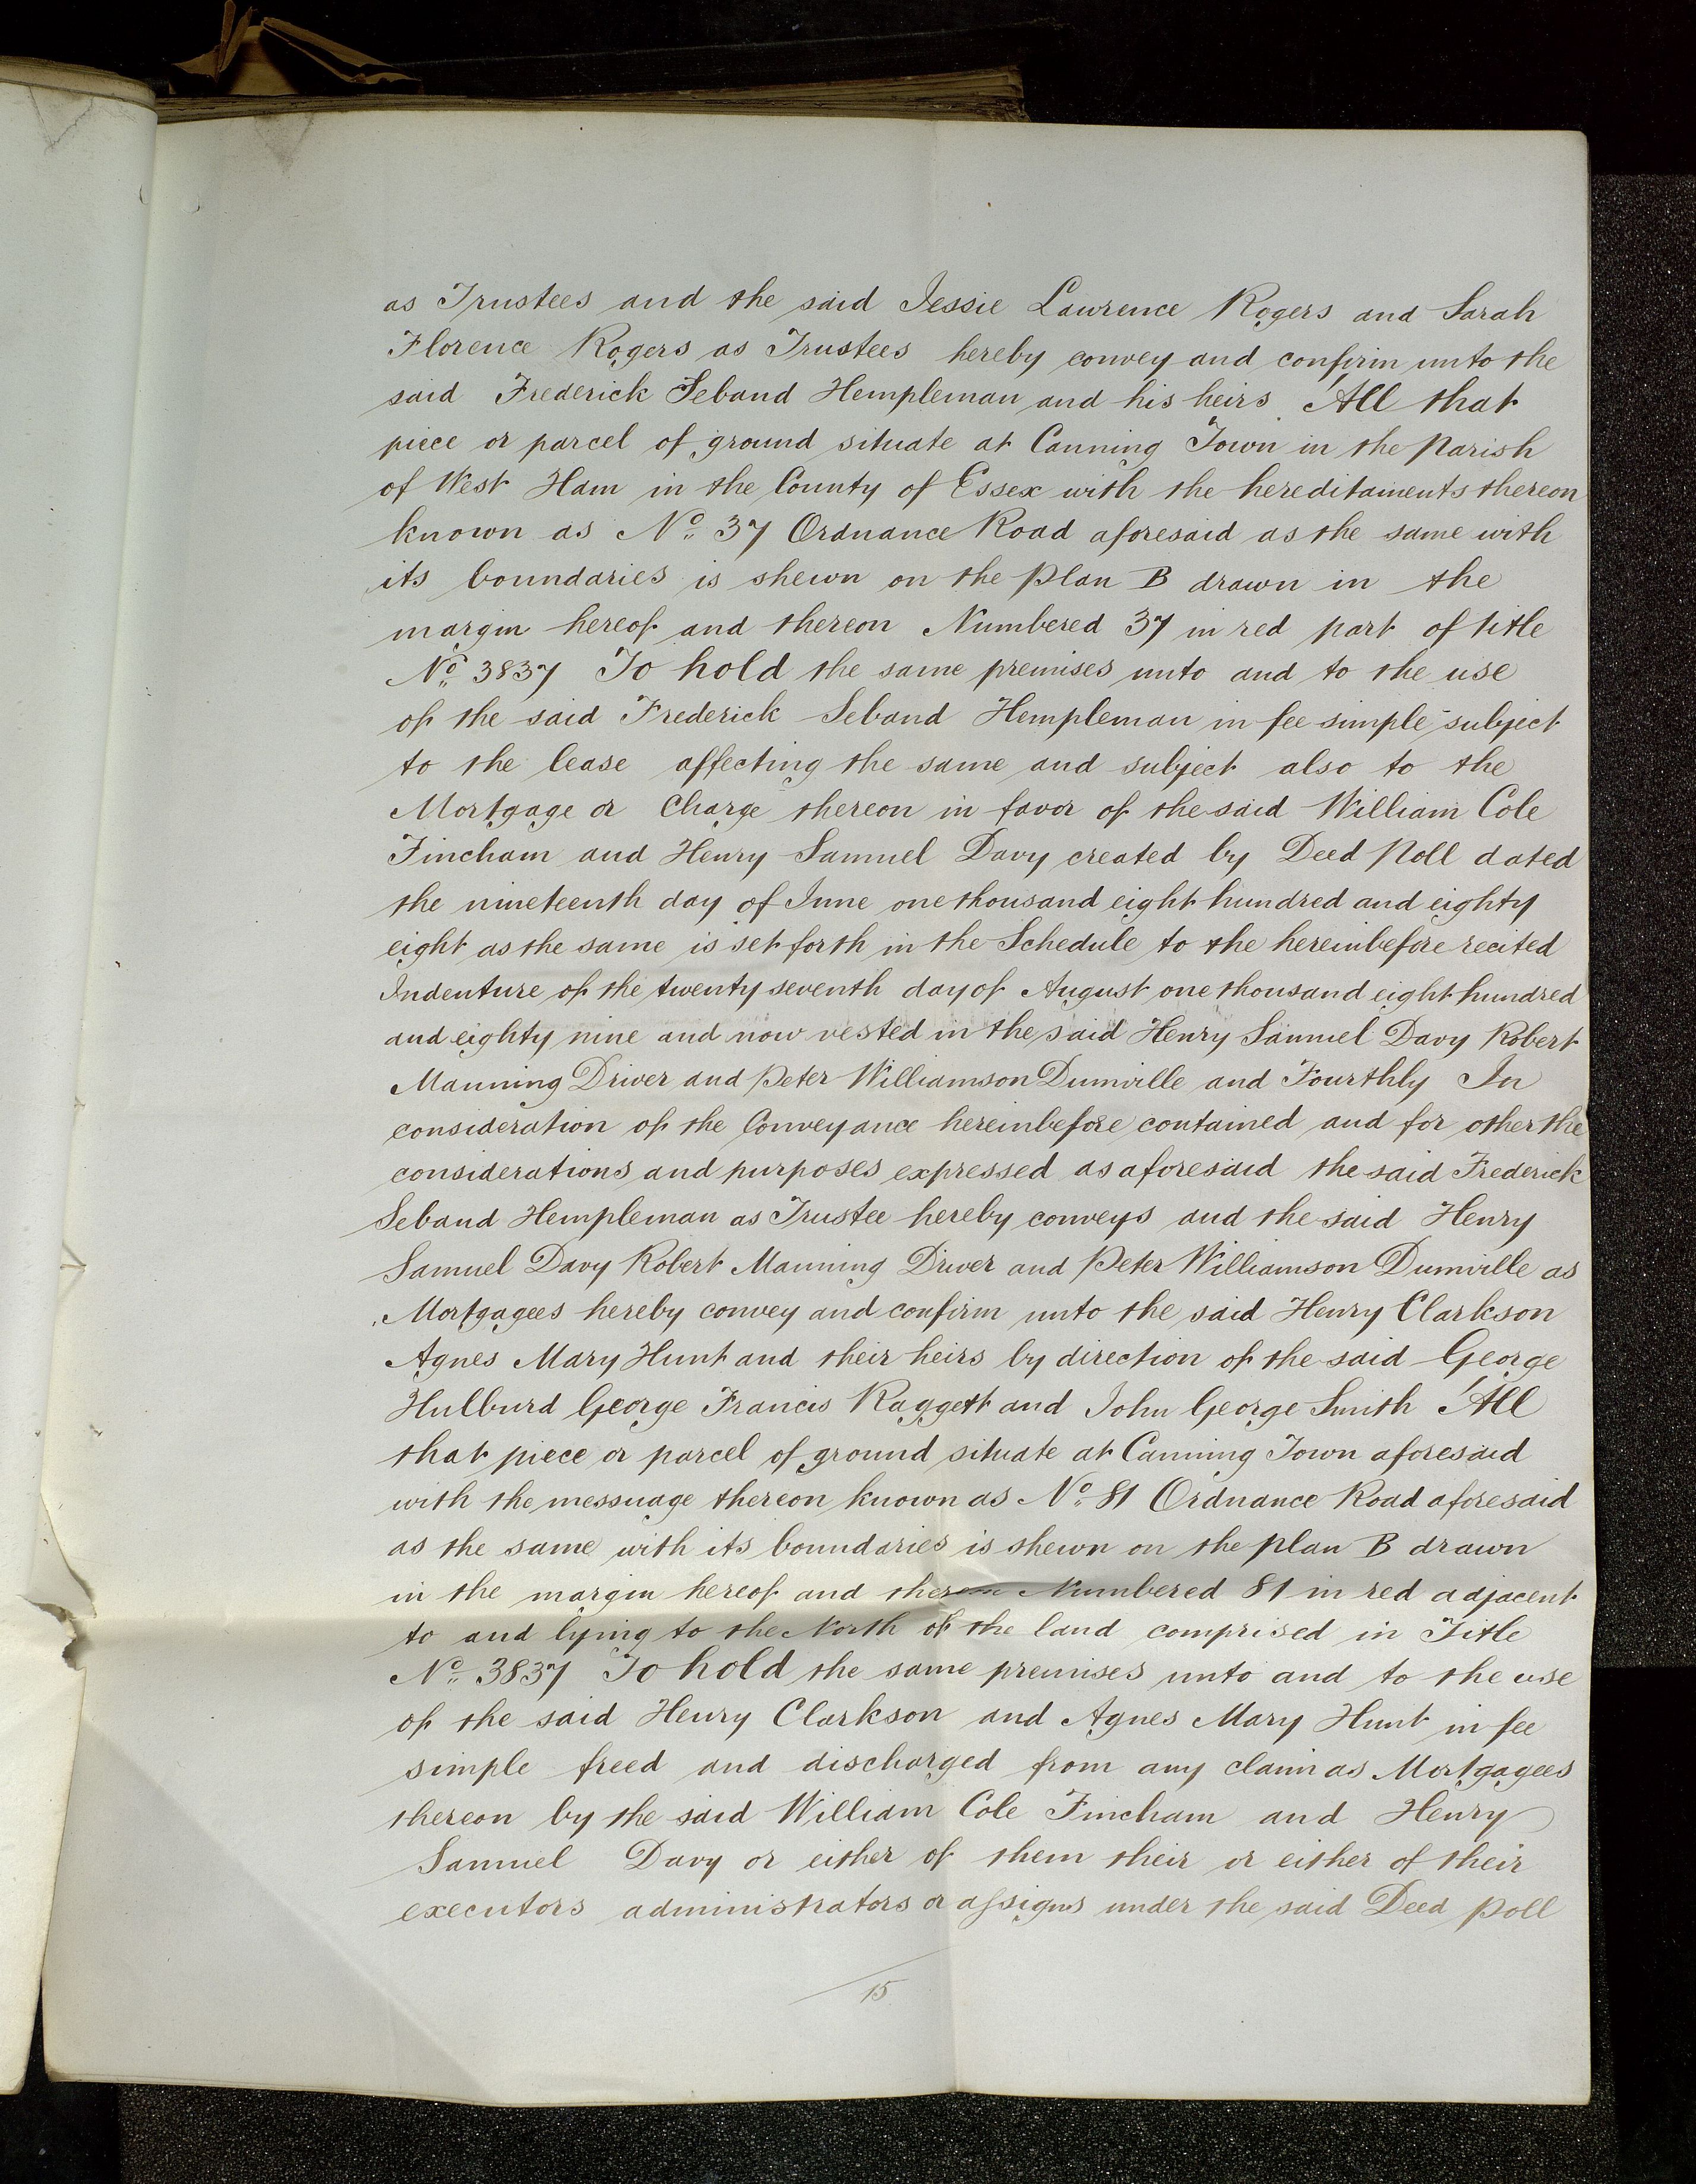 as Trustees and the said Jessie Lawrence Rogers and Sarah
Florence Rogers as Trustees hereby convey and confirm unto the
said Frederick Seband Hempleman and his heirs All that
piece or parcel of ground situate at Canning Town in the Parish
of West Ham in the County of Essex with the hereditaments thereon
known as No. 37 Ordnance Road aforesaid as the same with
its boundaries is shewn on the plan B drawn in the
margin hereof and thereon Numbered 37 in red part of title
No. 3837 To hold the same premises unto and to the use
of the said Frederick Seband Hempleman in fee simple subject
to the lease affecting the same and subject also to the
Mortgage or Charge thereon in favor of the said William Cole
Fincham and Henry Samuel Davy created by Deed Poll dated
the nineteenth day of June one thousand eight hundred and eighty
eight as the same is set forth in the Schedule to the hereinbefore recited
Indenture of the twenty seventh day of August one thousand eight hundred
and eighty nine and now vested in the said Henry Samuel Davy Robert
Manning Driver and Peter Williamson Dumville and Fourthly In
consideration of the Conveyance hereinbefore contained and for other the
considerations and purposes expressed as aforesaid the said Frederick
Seband Hempleman as Trustee hereby conveys and the said Henry
Samuel Davy Robert Manning Driver and Peter Williamson Dumville as
Mortgagees hereby convey and confirm unto the said Henry Clarkson
Agnes Mary Hunt and their heirs by direction of the said George
Hulburd George Francis Raggett and John George Smith All
that piece or parcel of ground situate at Canning Town aforesaid
with the messuage thereon known as No. 81 Ordnance Road aforesaid
as the same with its boundaries is shewn on the plan B drawn
in the margin hereof and thereon Numbered 81 in red adjacent
to and lying to the North of the land comprised in Title
No. 3837 To hold the same premises unto and to the use
of the said Henry Clarkson and Agnes Mary Hunt in fee
simple freed and discharged from any claim as Mortgagees
thereon by the said William Cole Fincham and Henry
Samuel Davy or either of them their or either of their
executors administrators or assigns under the said Deed Poll
15